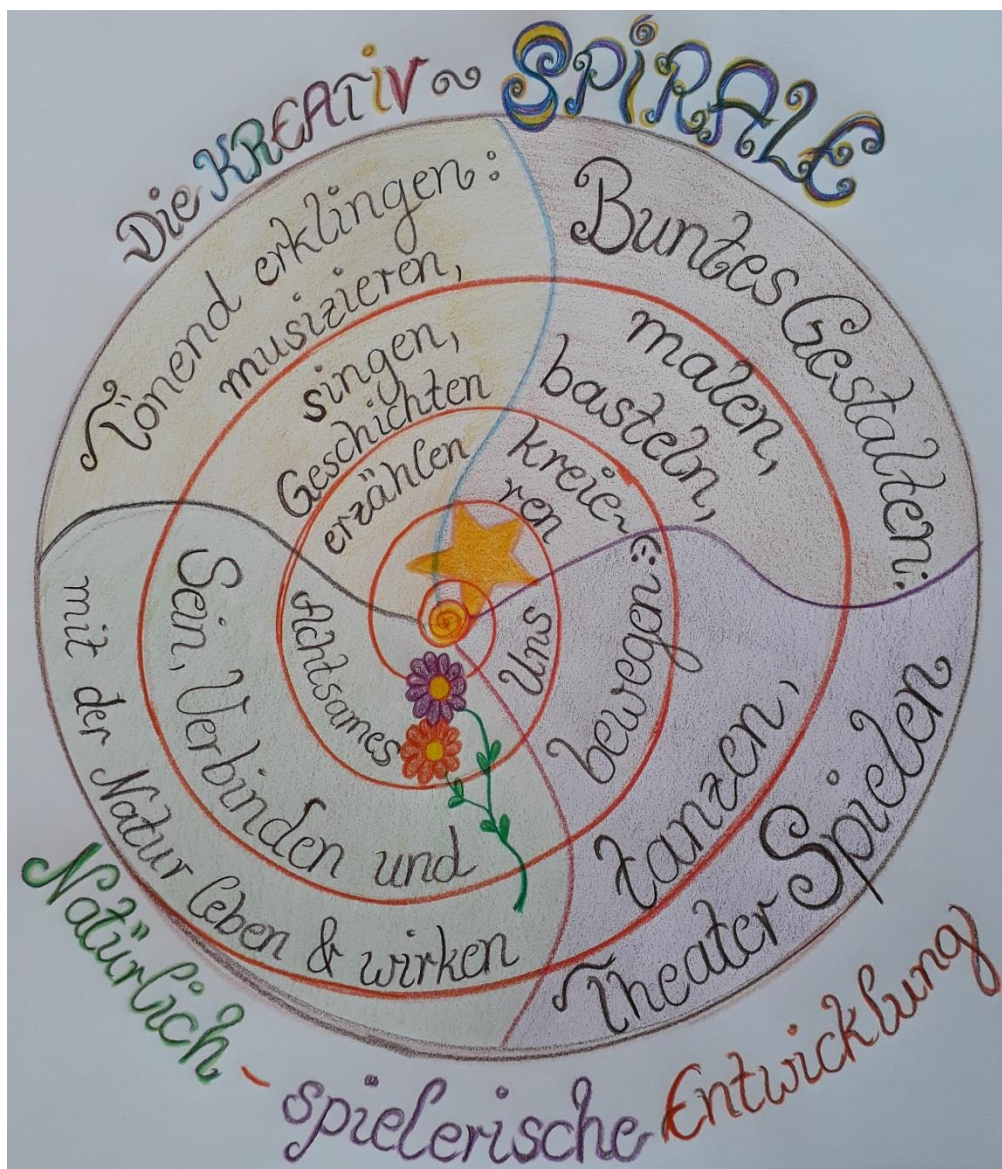 Die KREATiV~ SPiRALE
Tönend erklingen:
musizieren,
singen,
Geschichten
erzählen
Buntes Gestalten:
malen,
basteln,
kreie~
ren
Uns
bewegen:)
tanzen,
Theater Spielen
Achtsames
Sein, Verbinden und
mit der Natur leben & wirken
Natürlich - spielerische Entwicklung